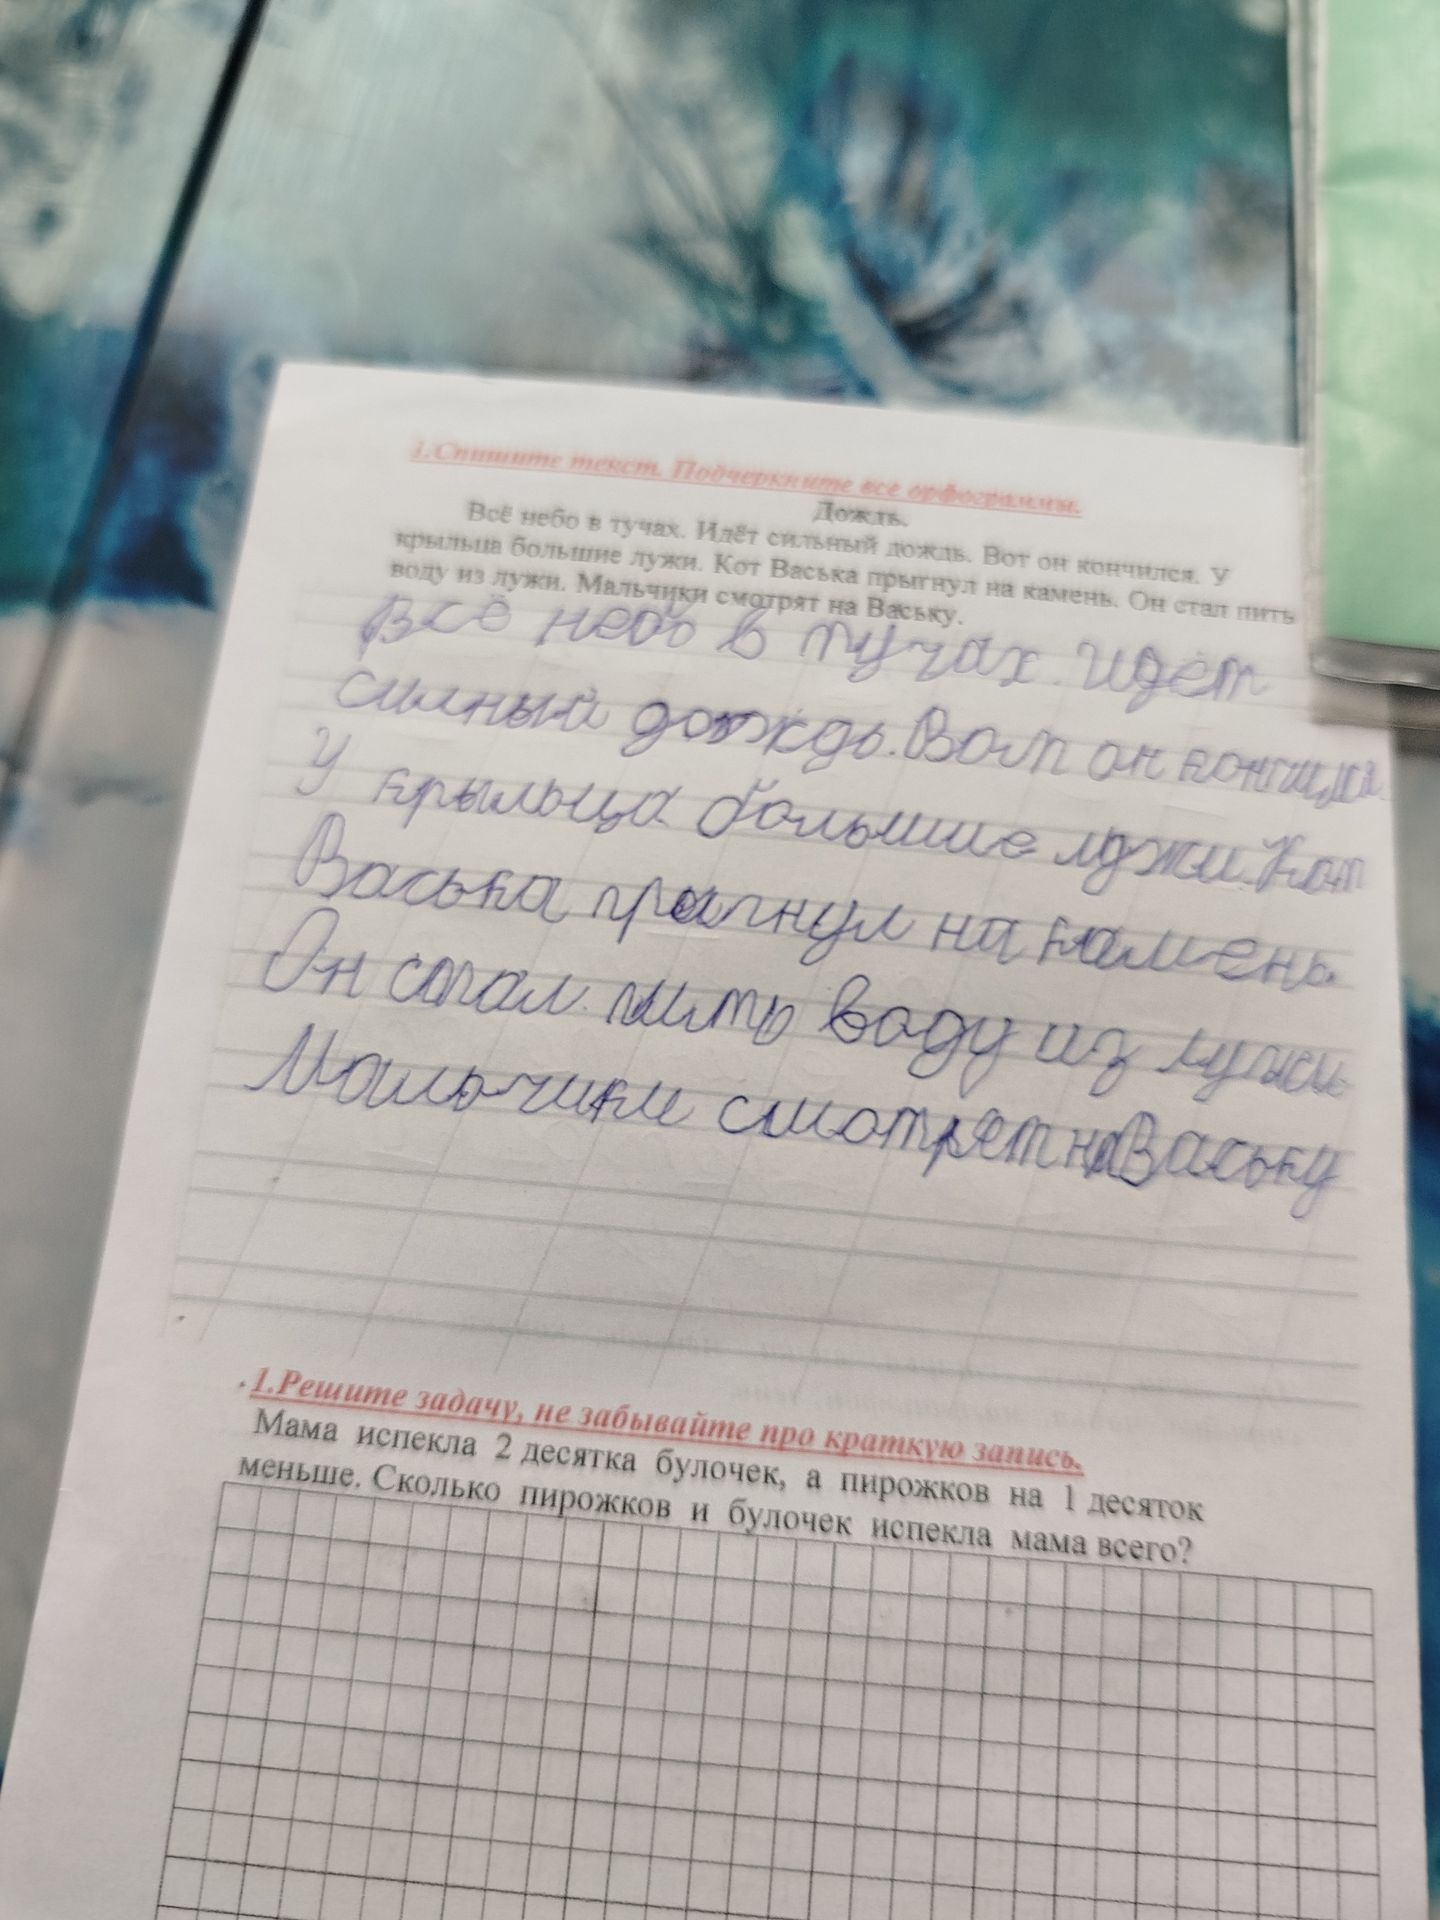 1.Спишите текст. Подчеркните все орфограммы.
Дождь.
Всё небо в тучах. Идёт сильный дождь. Вот он кончился. У
крыльца большие лужи. Кот Васька прыгнул на камень. Он стал пить
воду из лужи. Мальчики смотрят на Ваську.
Всё небо в тучах. Идёт
силный дождь. Вот он
У крыльца большие лужи. Кот
Васька прыгнул на камень.
Он стал пить воду из лужи
Мальчики смотрят на Ваську
1.Решите задачу, не забывайте про краткую запись.
Мама испекла 2 десятка булочек, а пирожков на 1 десяток
меньше. Сколько пирожков и булочек испекла мама всего?